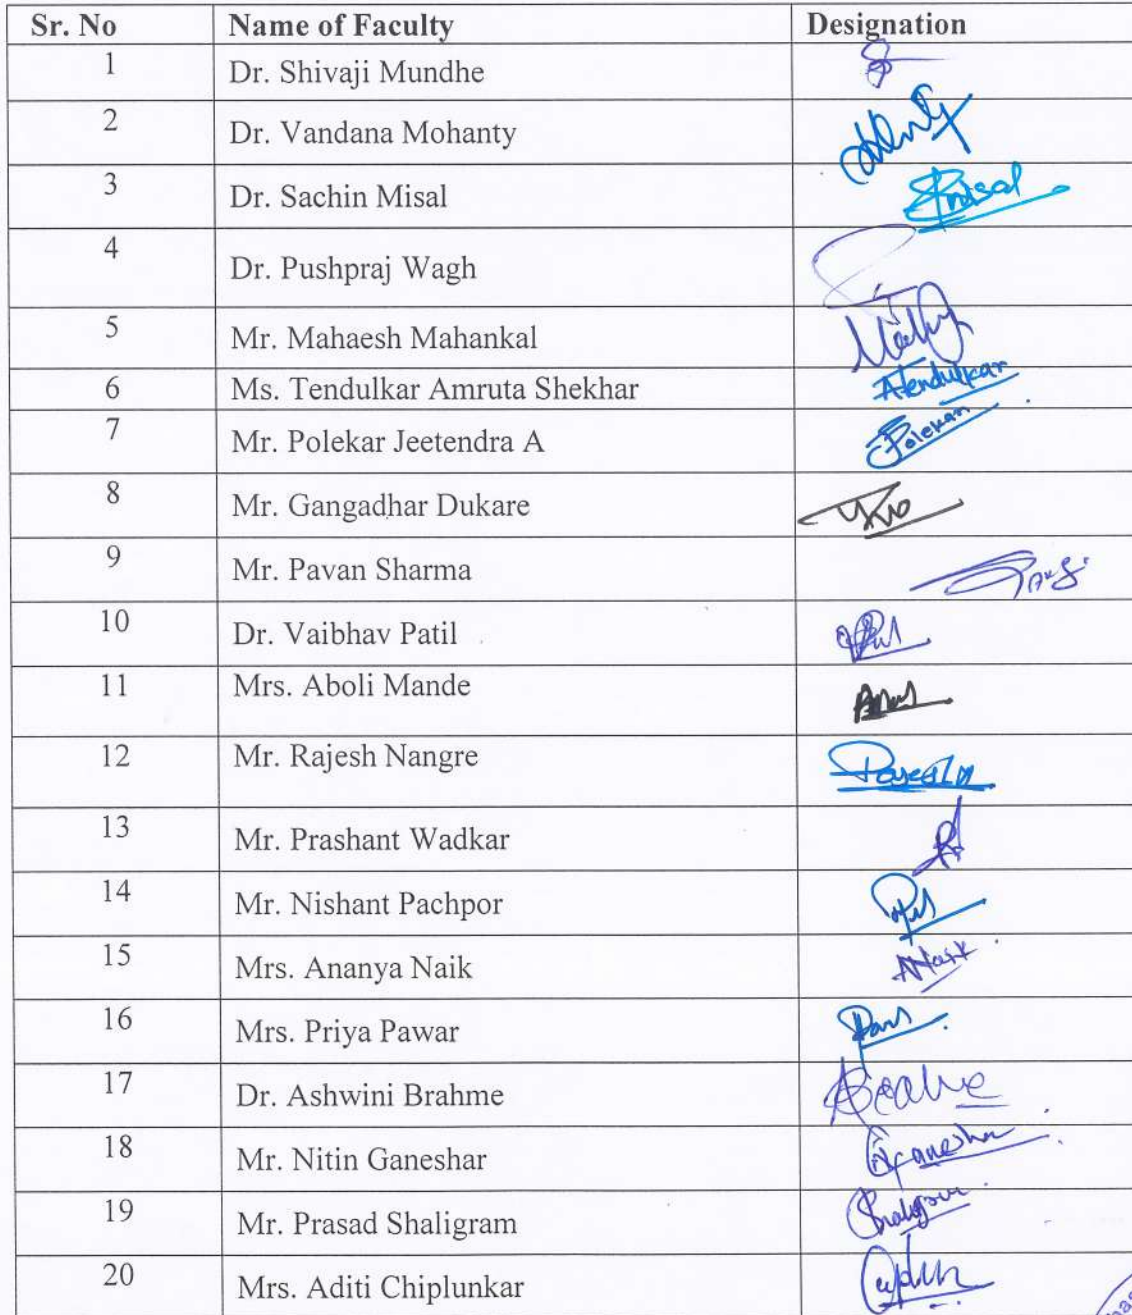 Sr. No Name of Faculty Designation
1 Dr. Shivaji Mundhe
2 Dr. Vandana Mohanty
3 Dr. Sachin Misal
4 Dr. Pushpraj Wagh
5 Mr. Mahaesh Mahankal
6 Ms. Tendulkar Amruta Shekhar ATendulkar
7 Mr. Polekar Jeetendra A Polekar
8 Mr. Gangadhar Dukare
9 Mr. Pavan Sharma
10 Dr. Vaibhav Patil
11 Mrs. Aboli Mande
12 Mr. Rajesh Nangre
13 Mr. Prashant Wadkar
14 Mr. Nishant Pachpor
15 Mrs. Ananya Naik
16 Mrs. Priya Pawar
17 Dr. Ashwini Brahme
18 Mr. Nitin Ganeshar
19 Mr. Prasad Shaligram
20 Mrs. Aditi Chiplunkar